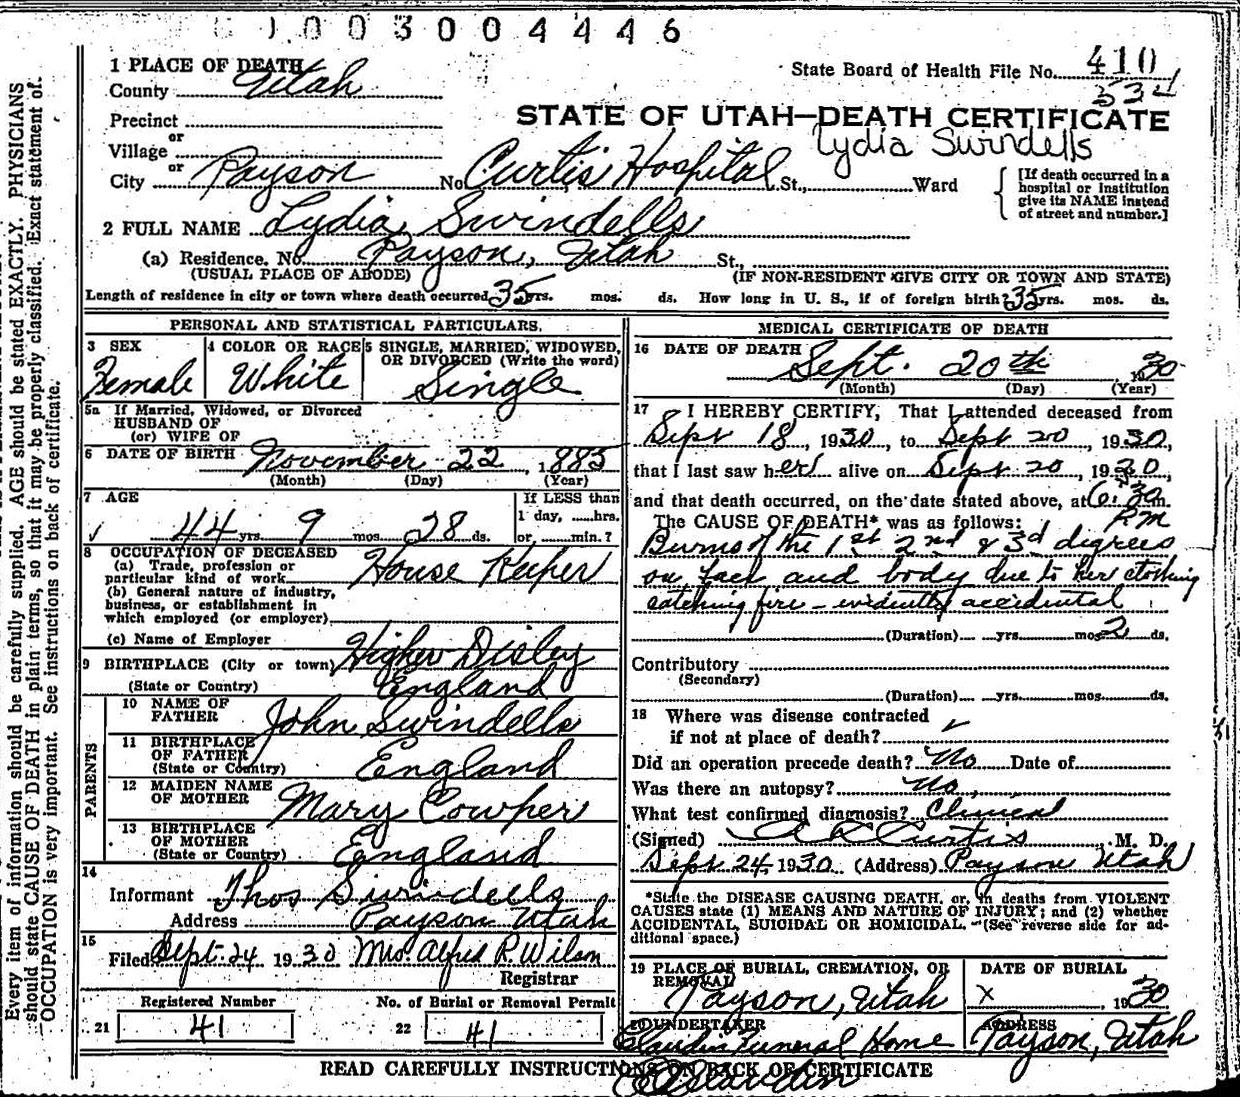 1003004446
1 PLACE OF DEATH
County Utah
State Board of Health File No. 410
534
Precinct
STATE OF UTAH—DEATH CERTIFICATE
or
Village
Lydia Swindells
or
City Payson No. Curtis Hospital St., Ward
[If death occurred in a hospital or institution give its NAME instead of street and number.]
2 FULL NAME Lydia Swindells
(a) Residence. No. Payson, Utah St.,
(USUAL PLACE OF ABODE) (IF NON-RESIDENT GIVE CITY OR TOWN AND STATE)
Length of residence in city or town where death occurred 35 yrs. mos. ds. How long in U. S., if of foreign birth? 35 yrs. mos. ds.
PERSONAL AND STATISTICAL PARTICULARS.
3 SEX 4 COLOR OR RACE 5 SINGLE, MARRIED, WIDOWED, OR DIVORCED (Write the word)
Female White Single
5a If Married, Widowed, or Divorced
HUSBAND OF
(or) WIFE OF
6 DATE OF BIRTH November 22, 1885
(Month) (Day) (Year)
7 AGE If LESS than
1 day, ......hrs.
44 yrs 9 mos. 28 ds. or ......min.?
8 OCCUPATION OF DECEASED
(a) Trade, profession or
particular kind of work House Keeper
(b) General nature of industry,
business, or establishment in
which employed (or employer)
(c) Name of Employer
9 BIRTHPLACE (City or town) Higher Disley
(State or Country) England
PARENTS
10 NAME OF
FATHER John Swindells
11 BIRTHPLACE
OF FATHER
(State or Country) England
12 MAIDEN NAME
OF MOTHER Mary Cowper
13 BIRTHPLACE
OF MOTHER
(State or Country) England
14
Informant Thos Swindells
Address Payson Utah
15
Filed Sept. 24 1930 Mrs. Alfred R. Wilson
Registrar
Registered Number No. of Burial or Removal Permit
21 41 22 41
MEDICAL CERTIFICATE OF DEATH
16 DATE OF DEATH Sept. 20th 1930
(Month) (Day) (Year)
17 I HEREBY CERTIFY, That I attended deceased from
Sept 18, 1930, to Sept 20, 1930,
that I last saw her alive on Sept 20, 1930,
and that death occurred, on the date stated above, at 6:30 m.
The CAUSE OF DEATH* was as follows: P.M
Burns of the 1st 2nd & 3d degrees
on face and body due to her clothing
catching fire - evidently accidental
(Duration) yrs. mos. 2 ds.
Contributory
(Secondary)
(Duration) yrs. mos. ds.
18 Where was disease contracted
if not at place of death?
Did an operation precede death? No Date of
Was there an autopsy? No,
What test confirmed diagnosis? Clinical
(Signed) Curtis, M. D.
Sept 24, 1930 (Address) Payson Utah
*State the DISEASE CAUSING DEATH, or, in deaths from VIOLENT
CAUSES state (1) MEANS AND NATURE OF INJURY; and (2) whether
ACCIDENTAL, SUICIDAL OR HOMICIDAL. (See reverse side for ad-
ditional space.)
19 PLACE OF BURIAL, CREMATION, OR
REMOVAL DATE OF BURIAL
Payson, Utah X, 1930
20 UNDERTAKER ADDRESS
Claudin Funeral Home Payson, Utah
READ CAREFULLY INSTRUCTIONS ON BACK OF CERTIFICATE
Every item of information should be carefully supplied. AGE should be stated EXACTLY. PHYSICIANS
should state CAUSE OF DEATH in plain terms, so that it may be properly classified. Exact statement of
OCCUPATION is very important. See instructions on back of certificate.